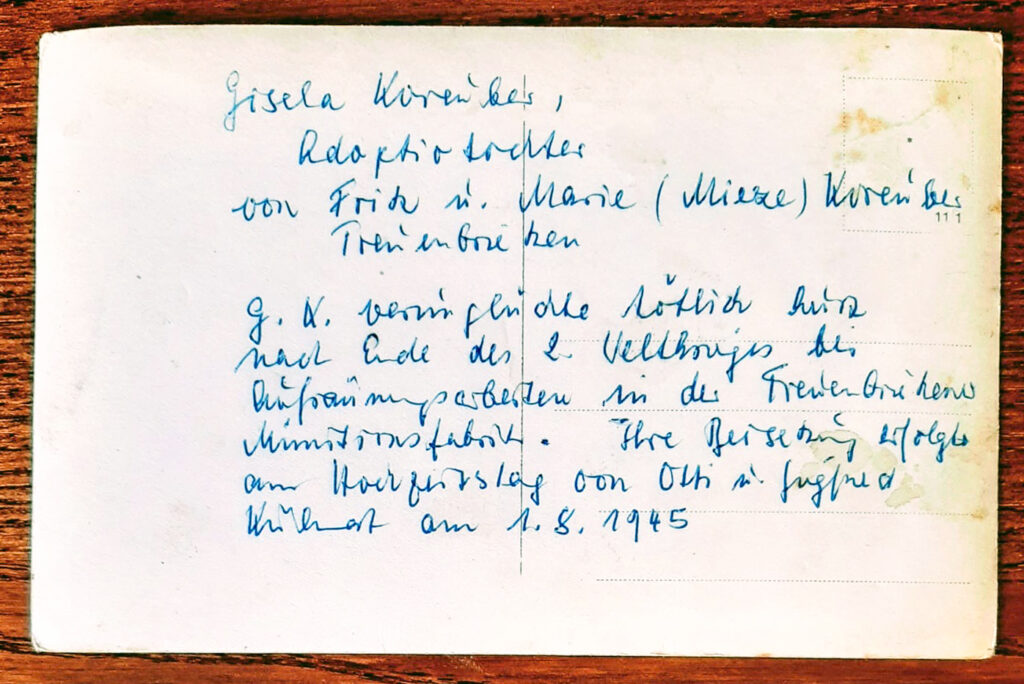 Gisela Koreuber,
Adoptivtochter
von Fritz u. Marie (Mieze) Koreuber
111
Treuenbrietzen
G. K. verunglückte tötlich kurz
nach Ende des 2. Weltkrieges bei
Aufräumungsarbeiten in der Treuenbrietzener
Munitionsfabrik. Ihre Beisetzung erfolgte
am Hochzeitstag von Otti u. Siegfried
am 1.8.1945